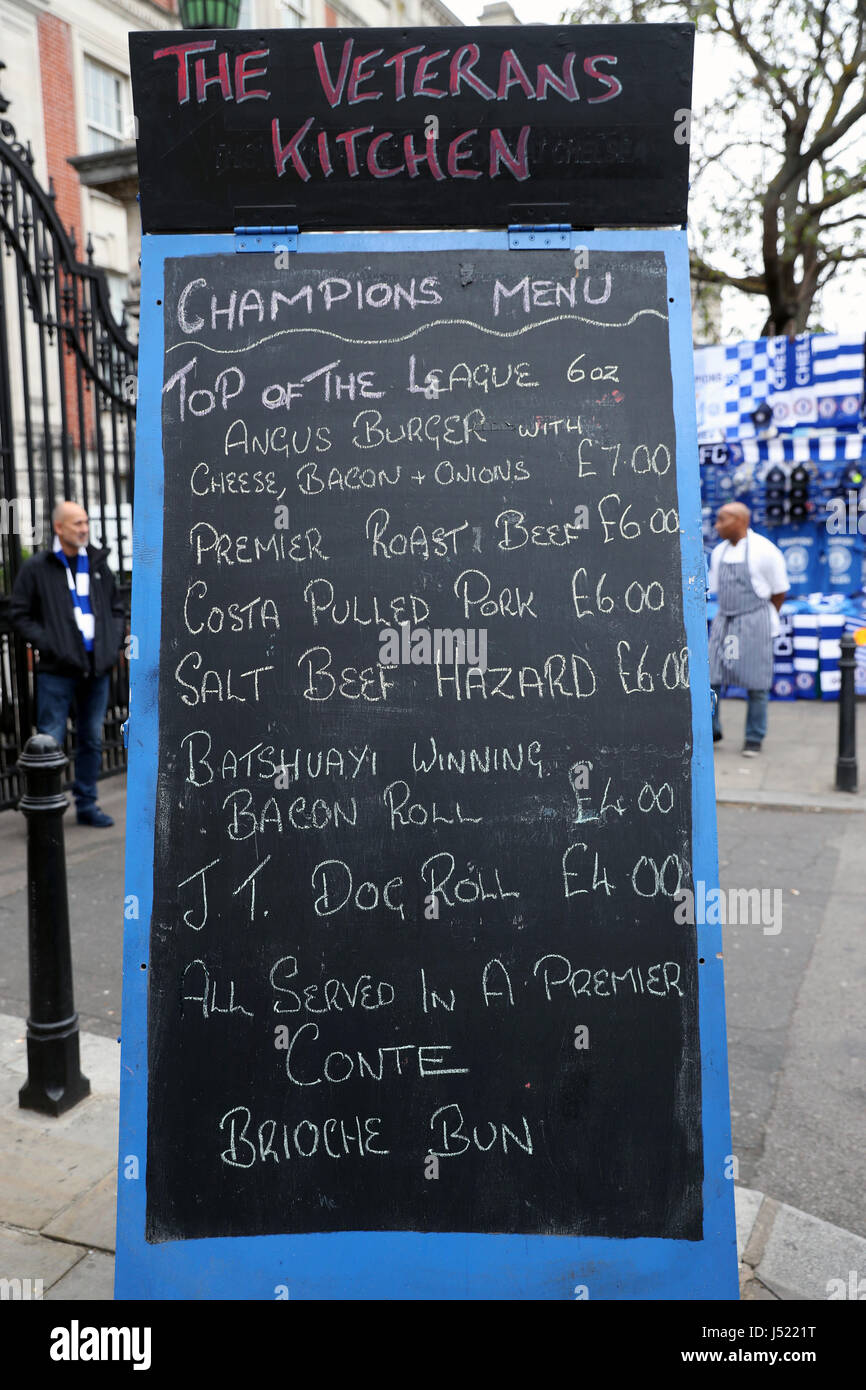 THE VETERANS
KITCHEN
CHAMPIONS MENU
TOP OF THE LEAGUE 6oz
ANGUS BURGER WITH
CHEESE, BACON + ONIONS £7.00
PREMIER ROAST BEEF £6.00
COSTA PULLED PORK £6.00
SALT BEEF HAZARD £6.00
BATSHUAYI WINNING
BACON ROLL £4.00
J.T. DOG ROLL £4.00
ALL SERVED IN A PREMIER
CONTE
BRIOCHE BUN
CHELS
FC
alamy
Image ID: J5221T
www.alamy.com